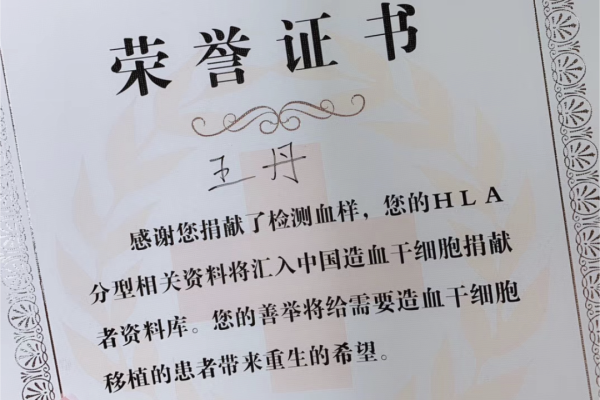 荣誉证书
王丹
感谢您捐献了检测血样，您的HLA
分型相关资料将汇入中国造血干细胞捐献
者资料库。您的善举将给需要造血干细胞
移植的患者带来重生的希望。